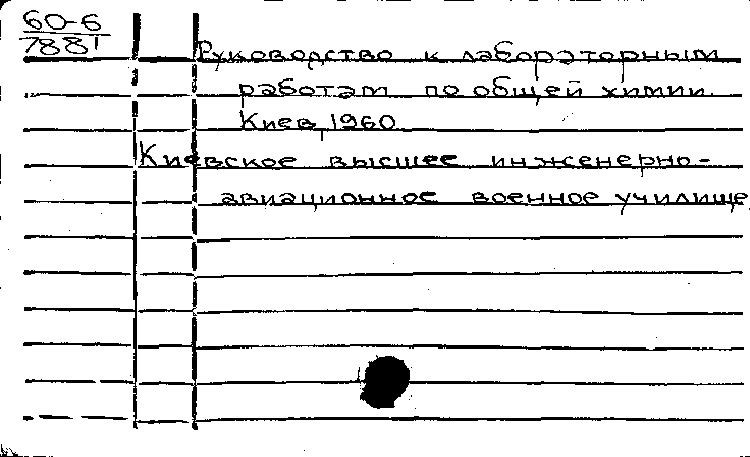 60-6
7881
Руководство к лабораторным
работам по общей химии.
Киев, 1960
Киевское высшее инженерно-
авиационное военное училище